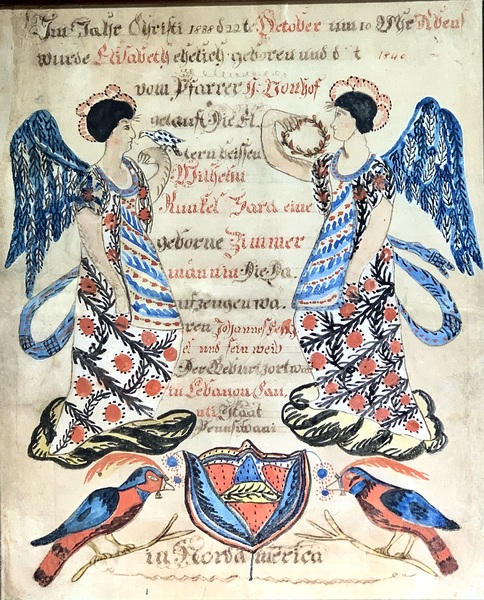 Im Jahr Christi 1838 d 22te October um 10 Uhr Abend
wurde Elisabeth ehelich geboren und d t 1840
vom Pfarrer J. Nonhof
getauft Die El
tern heissen
Wilhelm
Kunkel Sara eine
geborne Zimmer
mannin Die Ta
ufzeugen wa
ren Johannes
et und sein weib
Der Geburtzort war
in Lebanon Caun
nti Staat
Pennsivaani
in Nordamerica